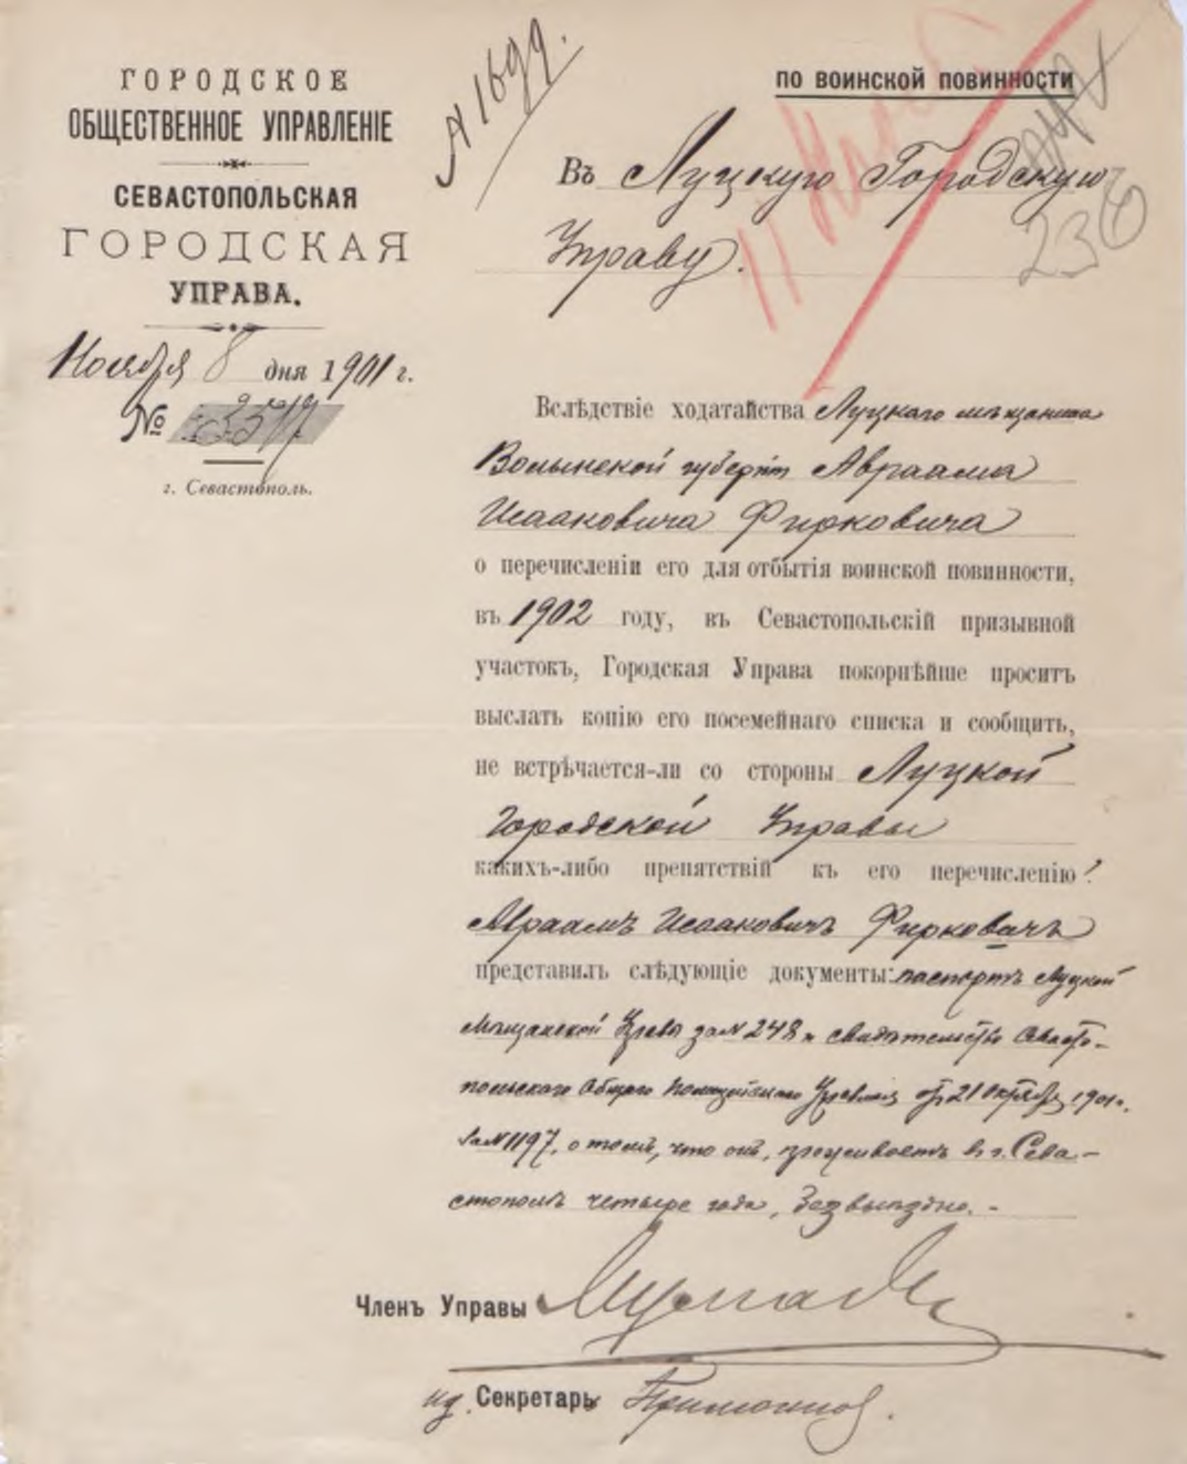 ГОРОДСКОЕ
ОБЩЕСТВЕННОЕ УПРАВЛЕНІЕ
СЕВАСТОПОЛЬСКАЯ
ГОРОДСКАЯ
УПРАВА.
Ноября 8 дня 1901 г.
№ 3517
г. Севастополь.
№ 1699.
ПО ВОИНСКОЙ ПОВИННОСТИ
236
Въ Луцкую Городскую
Управу.
Вслѣдствіе ходатайства Луцкаго мѣщанина
Волынской губерніи Авраама
Исааковича Фирковича
о перечисленіи его для отбытія воинской повинности,
въ 1902 году, въ Севастопольскій призывной
участокъ, Городская Управа покорнѣйше проситъ
выслать копію его посемейнаго списка и сообщить,
не встрѣчается-ли со стороны Луцкой
Городской Управы
какихъ-либо препятствій къ его перечисленію?
Авраамъ Исааковичъ Фирковичъ
представилъ слѣдующіе документы: паспортъ Луцкой
Мѣщанской Управы за № 248 и свидѣтельство Севасто-
польскаго Общаго Полицейскаго Управленія отъ 21 Октября 1901 г.
за № 1197, о томъ, что онъ, проживаетъ въ г. Сева-
стополѣ четыре года, безвыѣздно. -
Членъ Управы
ид. Секретарь